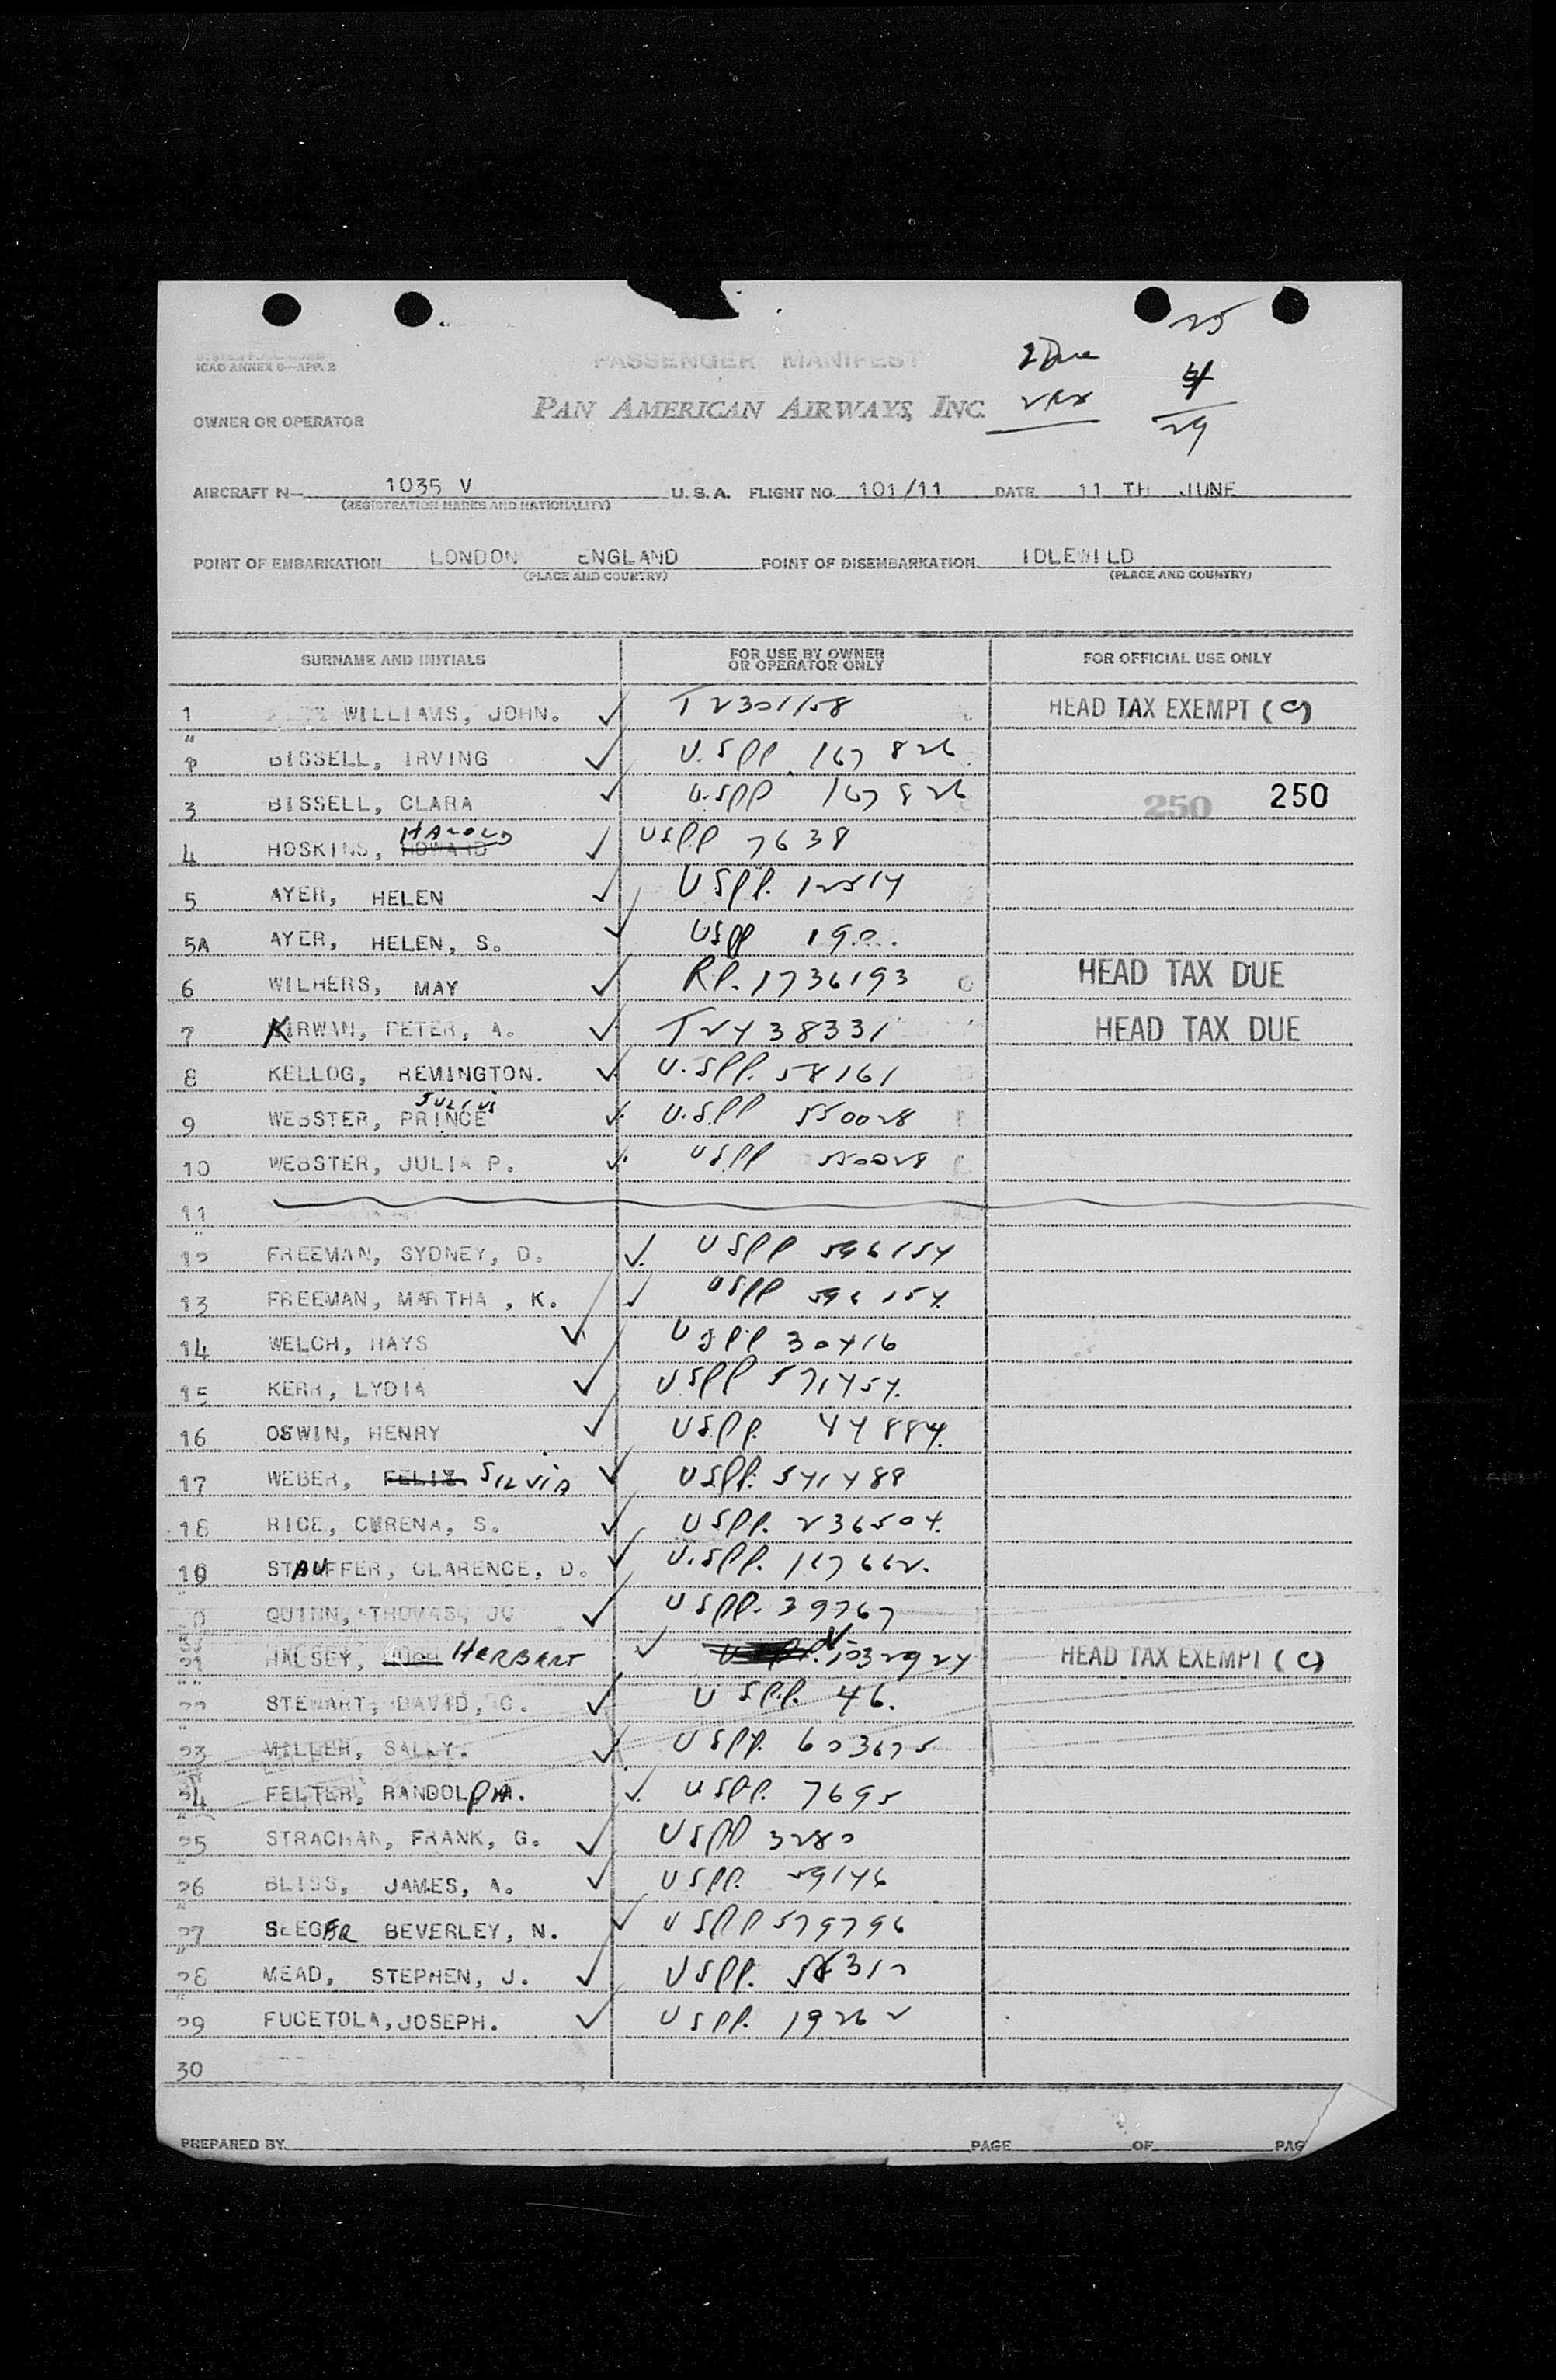 25
PASSENGER MANIFEST
2 Due
ICAO ANNEX 9—APP. 2
4
PAN AMERICAN AIRWAYS, INC.
2 Ex
OWNER OR OPERATOR
29
AIRCRAFT N— 1035 V U. S. A. FLIGHT NO. 101/11 DATE 11 TH JUNE
(REGISTRATION MARKS AND NATIONALITY)
POINT OF EMBARKATION LONDON ENGLAND POINT OF DISEMBARKATION IDLEWILD
(PLACE AND COUNTRY) (PLACE AND COUNTRY)
SURNAME AND INITIALS FOR USE BY OWNER OR OPERATOR ONLY FOR OFFICIAL USE ONLY
1 WILLIAMS, JOHN. ✓ T 2301158 HEAD TAX EXEMPT (C)
BISSELL, IRVING ✓ U.S PP. 167 826
3 BISSELL, CLARA ✓ U.S PP 167 826 250 250
HAROLD
4 HOSKINS, HOWARD ✓ USPP 7638
5 AYER, HELEN ✓ USPP. 12514
5A AYER, HELEN, S. ✓ USPP 190.
6 WILHERS, MAY ✓ R.P. 1736193 HEAD TAX DUE
7 KIRWAN, PETER, A. ✓ T 2438331 HEAD TAX DUE
8 KELLOG, REMINGTON. ✓ U.SPP. 58161
JULIUS
9 WEBSTER, PRINCE ✓ U.SPP 550028
10 WEBSTER, JULIA P. ✓ USPP 550028
11
12 FREEMAN, SYDNEY, D. ✓ USPP 596154
13 FREEMAN, MARTHA , K. ✓ USPP 596154
14 WELCH, HAYS ✓ USPP 30416
15 KERR, LYDIA ✓ USPP 571454.
16 OSWIN, HENRY ✓ USPP. 44884.
17 WEBER, FELIX. SILVIA ✓ USPP. 541489
18 RICE, CURENA, S. ✓ USPP. 236504.
19 STAUFFER, CLARENCE, D. ✓ U.SPP. 167662.
QUINN, THOMAS, JO ✓ USPP. 39767
21 HALSEY, HUGH HERBERT ✓ 1032924 HEAD TAX EXEMPT (C)
22 STEWART, DAVID, C. ✓ USPP. 46.
23 MILLER, SALLY. ✓ USPP. 603675
24 FELTER, RANDOLPH. ✓ USPP. 7695
25 STRACHAN, FRANK, G. ✓ USPP 3280
26 BLISS, JAMES, A. ✓ USPP. 29146
27 SEEGER BEVERLEY, N. ✓ USPP 579796
28 MEAD, STEPHEN, J. ✓ USPP.
29 FUCETOLA, JOSEPH. ✓ USPP. 19262
30
PREPARED BY PAGE OF PAG